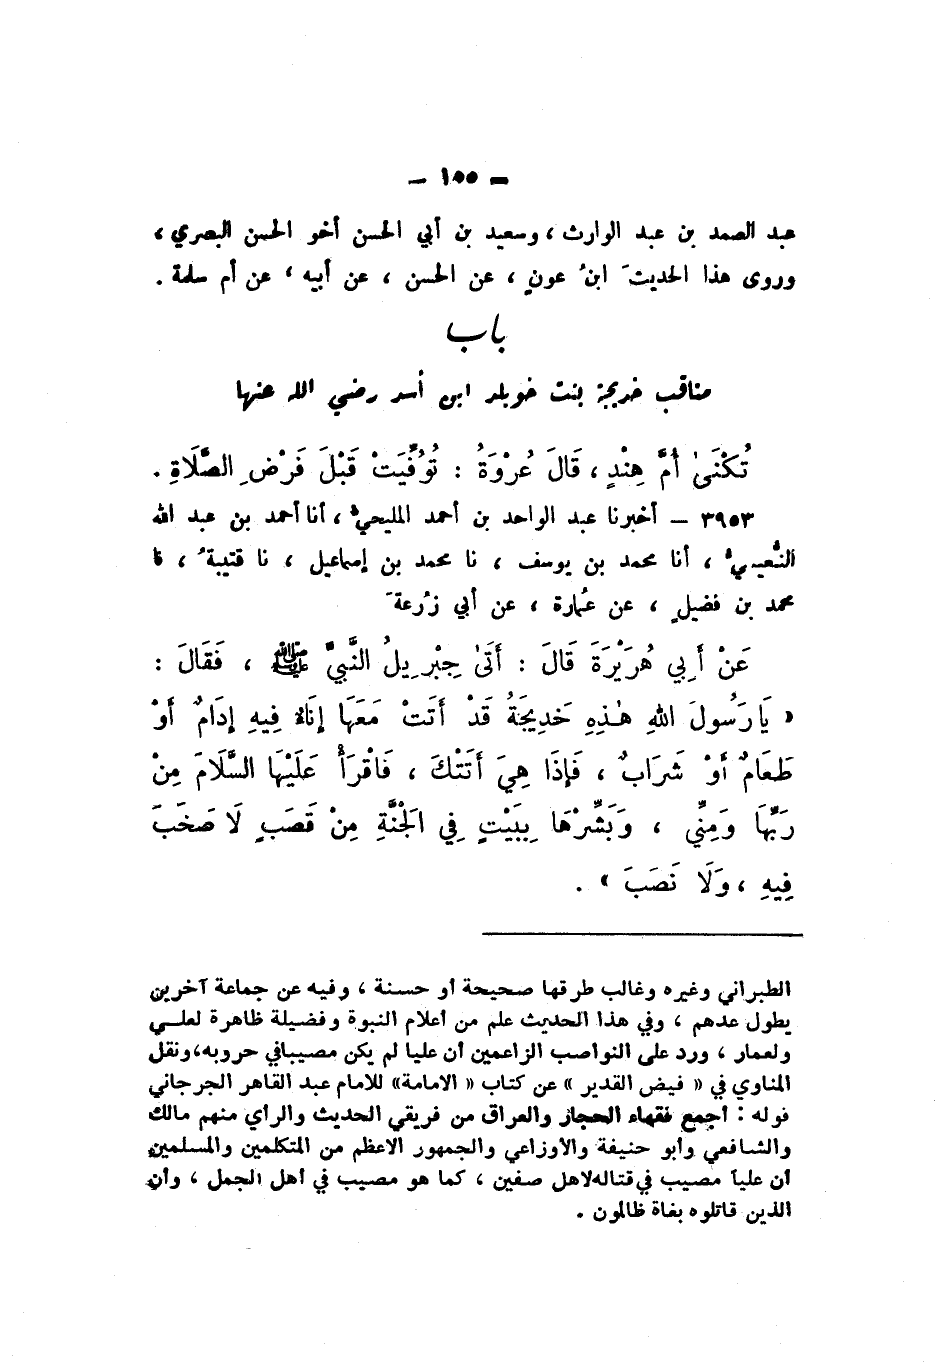 - ١٥٥ -
عبد الصمد بن عبد الوارث ، وسعيد بن أبي الحسن أخو الحسن البصري ،
وروى هذا الحديثَ ابنُ عونٍ ، عن الحسن ، عن أبيه ، عن أم سلمة .
باب
مناقب خديجة بنت خويلد ابن أسد رضي الله عنها
تُكْنَىٰ أُمَّ هِنْدٍ ، قَالَ عُرْوَةُ : تُوُفِّيَتْ قَبْلَ فَرْضِ الصَّلَاةِ .
٣٩٥٣ - أخبرنا عبد الواحد بن أحمد المليحيُّ ، أنا أحمد بن عبد الله
النُّعيميُّ ، أنا محمد بن يوسف ، نا محمد بن إسماعيل ، نا قتيبةُ ، نا
محمد بن فضيلٍ ، عن عُمارة ، عن أبي زُرعةَ
عَنْ أَبِي هُرَيْرَةَ قَالَ : أَتَىٰ جِبْرِيلُ النَّبِيَّ ﷺ ، فَقَالَ :
« يَا رَسُولَ اللهِ هٰذِهِ خَدِيجَةُ قَدْ أَتَتْ مَعَهَا إِنَاءٌ فِيهِ إِدَامٌ أَوْ
طَعَامٌ أَوْ شَرَابٌ ، فَإِذَا هِيَ أَتَتْكَ ، فَاقْرَأْ عَلَيْهَا السَّلَامَ مِنْ
رَبِّهَا وَمِنِّي ، وَبَشِّرْهَا بِبَيْتٍ فِي الْجَنَّةِ مِنْ قَصَبٍ لَا صَخَبَ
فِيهِ ، وَلَا نَصَبَ » .
الطبراني وغيره وغالب طرقها صحيحة أو حسنة ، وفيه عن جماعة آخرين
يطول عدهم ، وفي هذا الحديث علم من أعلام النبوة وفضيلة ظاهرة لعلي
ولعمار ، ورد على النواصب الزاعمين أن عليا لم يكن مصيبا في حروبه ، ونقل
المناوي في « فيض القدير » عن كتاب « الامامة » للامام عبد القاهر الجرجاني
قوله : أجمع فقهاء الحجاز والعراق من فريقي الحديث والرأي منهم مالك
والشافعي وأبو حنيفة والأوزاعي والجمهور الاعظم من المتكلمين والمسلمين
أن علياً مصيب في قتاله لاهل صفين ، كما هو مصيب في أهل الجمل ، وأن
الذين قاتلوه بغاة ظالمون .